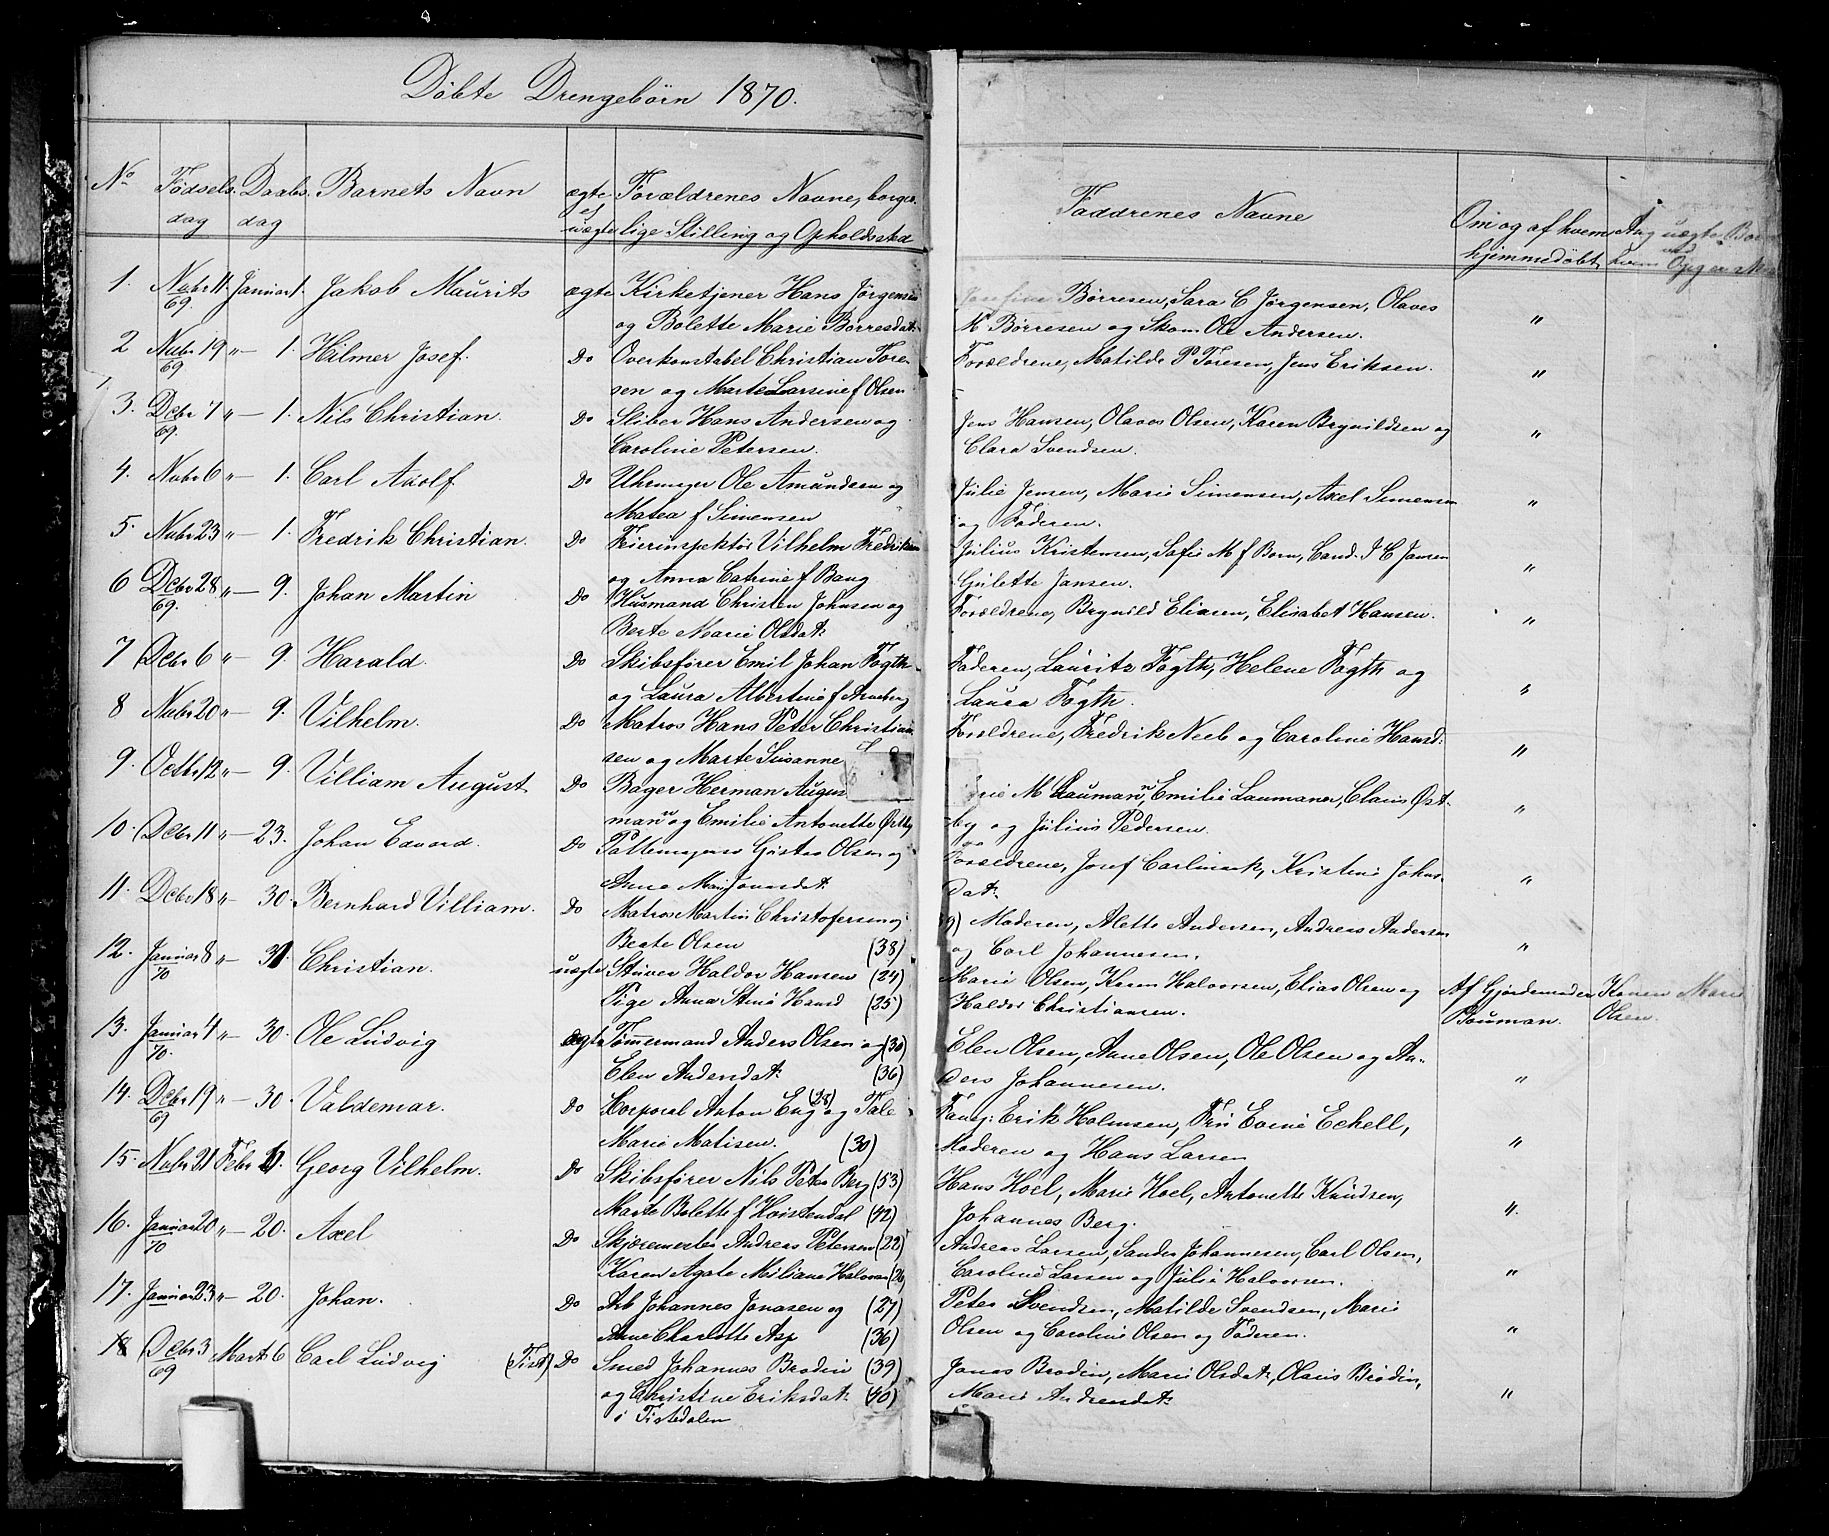 Døbte Drengebørn 1870.
No Fødsels Daabs Barnets Navn ægte Forældrenes Navne, borger
dag dag el uægte lige Stilling og Opholdssted
Faddrenes Navne
Om og af hvem hjemmedøbt
Ang uægte Børn ved hvem Opgivelse
1. Nvbr 11. 69. Januar 1. Jakob Maurits ægte Kirketjener Hans Jørgensen
og Bolette Marie Børresdat:
Josefine Børresen, Sara C Jørgensen, Olaves
M Børresen og Skom: Ole Andersen. "
2 Nvbr 19 69 " — 1. Hilmer Josef. Do Overkonstabel Christian Tore-
sen og Marte Larsine f Olsen
Forældrene, Matilde P Toresen, Jens Eriksen. "
3. Dcbr 7 69. " — 1. Nils Christian. Do Sliber Hans Andersen og
Caroline Petersen.
Jens Hansen, Olaves Olsen, Karen Brynildsen og
Clara Svendsen. "
4. Nvbr 6 " — 1. Carl Adolf Do Uhrmager Ole Amundsen og
Matea f Simensen
Julie Jensen, Marie Simensen, Axel Simensen
og Faderen. "
5. Nvbr 23 " — 1. Fredrik Christian. Do Feierinspektør Vilhelm Fredriksen
og Anna Catrine f Bang
Julius Kristensen, Safie M f Born, Cand. J C Jansen
Gulette Jansen. "
6 Dcbr 28 69. " — 9. Johan Martin Do Husmand Christen Johnsen og
Berte Marie Olsdat:
Forældrene, Brynild Eliasen, Elisabet Hansen. "
7 Dcbr 6 " — 9. Harald. Do Skibsfører Emil Johan Fogth
og Laura Albertine f Arneberg
Faderen, Lauritz Fogth, Helene Fogth og
Laura Fogth. "
8 Nvbr 20 " — 9. Vilhelm. Do Matros Hans Peter Christian
sen og Marte Susanne
Forældrene, Fredrik Neeb og Caroline Hansd: "
9. Octbr 12 " — 9. Villiam August Do Bager Herman Augus
mann og Emilie Antonette Østby
M Laumann, Emilie Laumaner, Claus Øst-
by og Julius Pedersen. "
10. Dcbr 11 " — 23. Johan Edvard. Do Pottemager Gustav Olsen og
Anna Marie
Forældrene, Josef Carlmark, Kristine Johns
dat: "
11. Dcbr 18 " — 30. Bernhard Villiam. Do Matros Martin Christofersen og
Berte Olsen (38)
Moderen, Alette Andersen, Andreas Andersen
og Carl Johannesen. "
12. Januar 8 70 " — 30. Christian. uægte Stuver Haldor Hansen (24)
Pige Anna Stine Hansd (25)
Marie Olsen, Karen Halvorsen, Elias Olsen og
Haldor Christiansen.
Af Gjordemoder Bouman.
Konen Marie Olsen.
13. Januar 4 70. " — 30. Ole Ludvig ægte Tømmermand Anders Olsen og (30)
Elen Andersdat: (36)
Elen Olsen, Anne Olsen, Ole Olsen og An-
ders Johannesen. "
14. Dcbr 19 69 " — 30. Valdemar. Do Corporal Anton Eng (28) og Tale
Marie Matisen. (30)
Fanej: Erik Holmsen, Frü Evine Eckell,
Moderen og Hans Larsen "
15. Nvbr 21 Febr 11. Georg Vilhelm. Do Skibsfører Nils Peter Berg (53)
Marte Bolette f Hoistendal (42)
Hans Hoel, Marie Hoel, Antonette Knudsen,
Johannes Berg. "
16. Januar 20 70 " — 20. Axel Do Skjæremester Andreas Petersen (22)
Karen Agate Miliane Halvors (26
Andreas Larsen, Sander Johannesen, Carl Olsen,
Caroline Larsen og Julie Halvorsen. "
17. Januar 23 " — 20. Johan. Do Arb Johannes Jonasen og (27)
Anne Charlotte Asp (36)
Peter Svendsen, Matilde Svendsen, Marie
Olsen og Caroline Olsen og Faderen. "
18 Dcbr 3 69 Marts 6 Carl Ludvig (Tist) Do Smed Johannes Brodin (39)
og Christine Eriksdat: (40)
i Tistedalen
Jonas Brodin, Marie Olsdat:, Olavis Brodin,
Marie Andreasdat: "